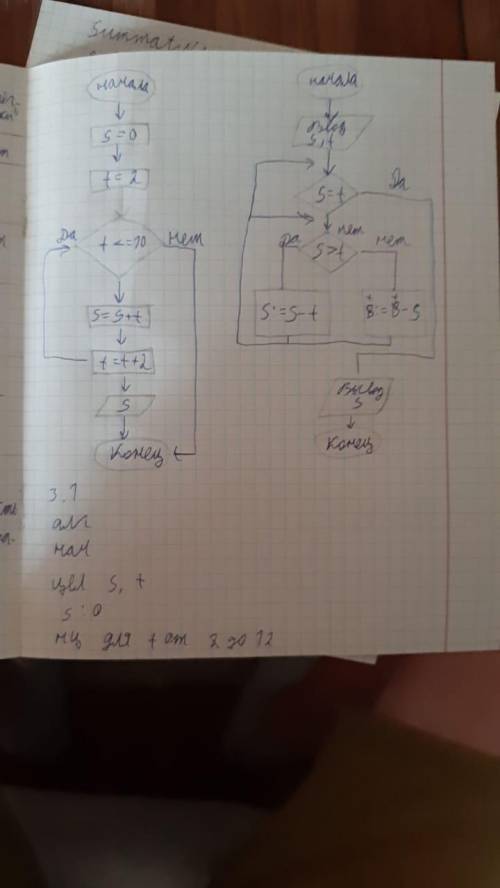 Summati
начала
s=0
t=2
Да
t<=10
нет
s=s+t
t=t+2
s
Конец
начала
Ввод
s,t
s=t
Да
нет
да
s>t
нет
s:=s-t
Вывод
s
Конец
3.1
алг
нач
цел s, t
s:0
нц для t от 2 до 12